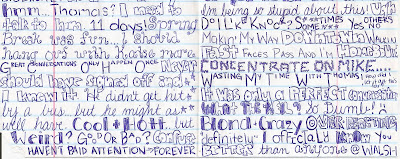 hmm... Thomas? I need to
talk to him 11 days! Spring
Break was fun... I should
hang out with Katie more
Great Personalities Only Happen Once Never
should have signed off and
I knew it. He didn't get hit
by a bus, but he might as
well have. Cool + Hott but
Weird? Good Or Bad? Confused
HAVENT PAID ATTENTION FOREVER
I'm being so stupid about this! Ugh
Do I Like Knox? Sometimes Others Yes No
Makin' My Way Downtown Walkin
Fast Faces Pass And I'm Home
CONCENTRATE ON MIKE....
Wasting My Time With Thomas! How did I
It was only a PERFECT
What The Hell? So Dumb!
Blond + Crazy OVERREACTING
definitely I officially know you
BETTER than anyone @ WALSH